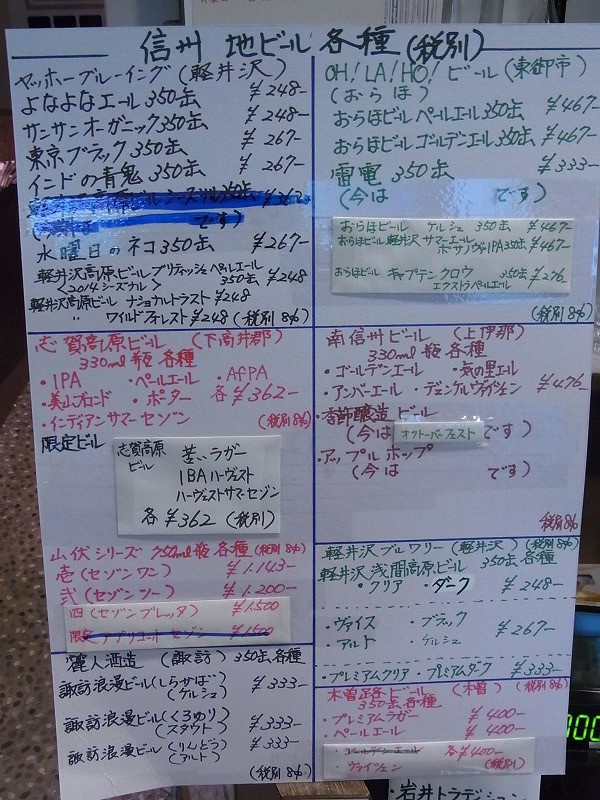 信州 地ビール 各種(税別)
ヤッホーブルーイング(軽井沢)
よなよなエール 350缶 ¥248-
サンサンオーガニック350缶 ¥248-
東京ブラック 350缶 ¥267-
インドの青鬼 350缶 ¥267-
¥362-
です)
水曜日のネコ350缶 ¥267-
軽井沢高原ビール ブリティッシュペールエール
<2014シーズナル> 350缶 ¥248
軽井沢高原ビール ナショナルトラスト ¥248
〃 ワイルドフォレスト ¥248 (税別8%)
OH! LA! HO! ビール (東御市)
(おらほ)
おらほビール ペールエール350缶 ¥467-
おらほビール ゴールデンエール350缶 ¥467-
雷電 350缶 ¥333-
(今は です)
おらほビール ケルシュ 350缶 ¥467-
おらほビール軽井沢 サマーエール
ボサノヴァIPA350缶 ¥467-
おらほビール キャプテンクロウ 350缶 ¥276-
エクストラペールエール
(税別8%)
志賀高原ビール (下高井郡)
330ml瓶 各種
・IPA ・ペールエール ・AFPA
・美山ブロンド ・ポーター 各¥362-
・インディアンサマーセゾン (税別8%)
限定ビール
志賀高原ビール 苦いラガー
IBAハーヴェスト
ハーヴェストサマーセゾン
各¥362 (税別)
山伏シリーズ 750ml瓶 各種 (税別8%)
壱 (セゾンワン) ¥1.143-
弐 (セゾンツー) ¥1.200-
四 (セゾンブレッタ) ¥1500
限定 アプリコット セゾン ¥1500
南信州ビール (上伊那)
330ml瓶 各種
・ゴールデンエール
・アンバーエール ・デュンケルヴァイツェン ¥476-
・季節醸造ビール
(今は オクトーバーフェスト です)
・アップルホップ
(今は です)
税別8%
軽井沢ブルワリー (軽井沢) (税別8%)
軽井沢 浅間高原ビール 350缶 各種
・クリア ・ダーク ¥248-
・ヴァイス ・ブラック
・アルト ・ケルシュ ¥267-
・プレミアムクリア ・プレミアムダーク ¥333-
麗人酒造 (諏訪) 350缶 各種
諏訪浪漫ビール(しらかば) ¥333-
(ケルシュ)
諏訪浪漫ビール(くろゆり) ¥333-
(スタウト)
諏訪浪漫ビール (りんどう) ¥333-
(アルト)
(税別8%)
木曽路ビール (木曽) (税別8%)
350缶 各種
・プレミアムラガー ¥400-
・ペールエール ¥400-
・ゴールデンエール 各¥400-
・ヴァイツェン (税別)
・岩井トラデイション